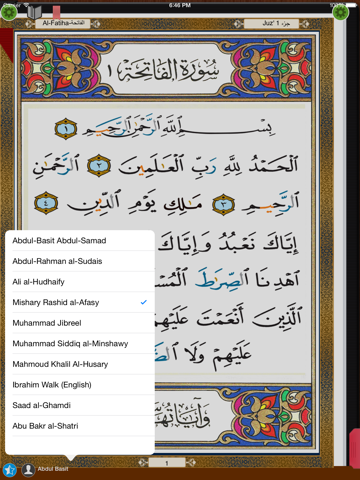 6:46 PM
Al-Fatiha-الفاتحة
Juz' 1 جزء
سُورَةُ الفَاتِحَة ١
بِسْمِ ٱللَّهِ ٱلرَّحْمَٰنِ ٱلرَّحِيمِ ١
ٱلْحَمْدُ لِلَّهِ رَبِّ ٱلْعَٰلَمِينَ ٢ ٱلرَّحْمَٰنِ
ٱلرَّحِيمِ ٣ مَٰلِكِ يَوْمِ ٱلدِّينِ ٤
إِيَّاكَ نَعْبُدُ وَإِيَّاكَ
ٱهْدِنَا ٱلصِّرَٰطَ
ٱلَّذِينَ أَنْعَمْتَ عَلَيْهِمْ
عَلَيْهِمْ وَلَا
وَآيَاتُهَا
Abdul-Basit Abdul-Samad
Abdul-Rahman al-Sudais
Ali al-Hudhaify
Mishary Rashid al-Afasy
Muhammad Jibreel
Muhammad Siddiq al-Minshawy
Mahmoud Khalil Al-Husary
Ibrahim Walk (English)
Saad al-Ghamdi
Abu Bakr al-Shatri
Abdul Basit
1